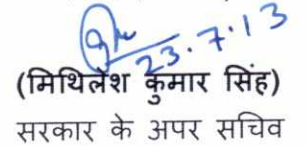 23.7.13
(मिथिलेश कुमार सिंह)
सरकार के अपर सचिव